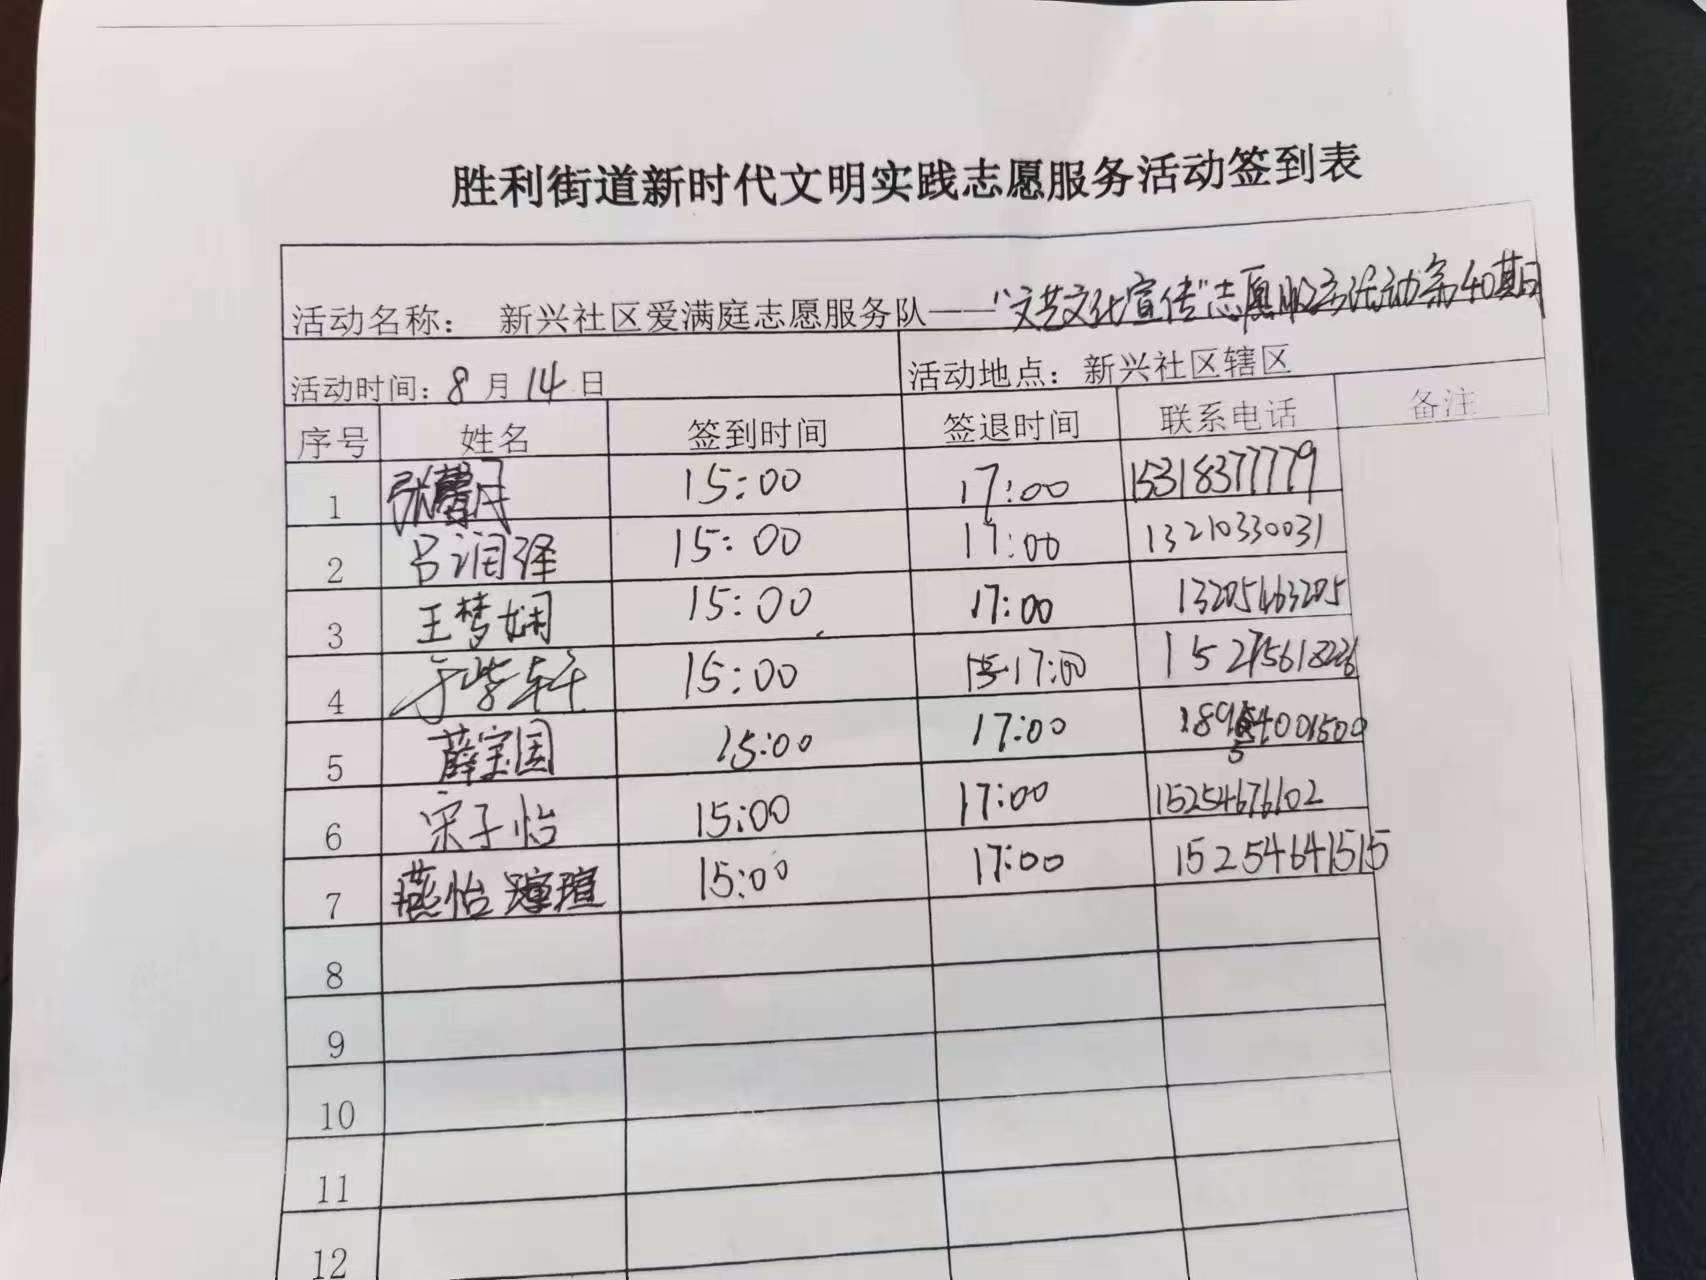 胜利街道新时代文明实践志愿服务活动签到表
活动名称： 新兴社区爱满庭志愿服务队——“文艺文化宣传”志愿服务活动第40期
活动时间：8月14日 活动地点：新兴社区辖区
序号 姓名 签到时间 签退时间 联系电话 备注
1 张馨月 15:00 17:00 15318377779
2 吕润泽 15:00 17:00 13210330031
3 王梦娴 15:00 17:00 13205463205
4 于紫轩 15:00 17:00
5 薛宝国 15:00 17:00
6 宋子怡 15:00 17:00 15254676102
7 燕怡瑄 15:00 17:00 15254641515
8
9
10
11
12